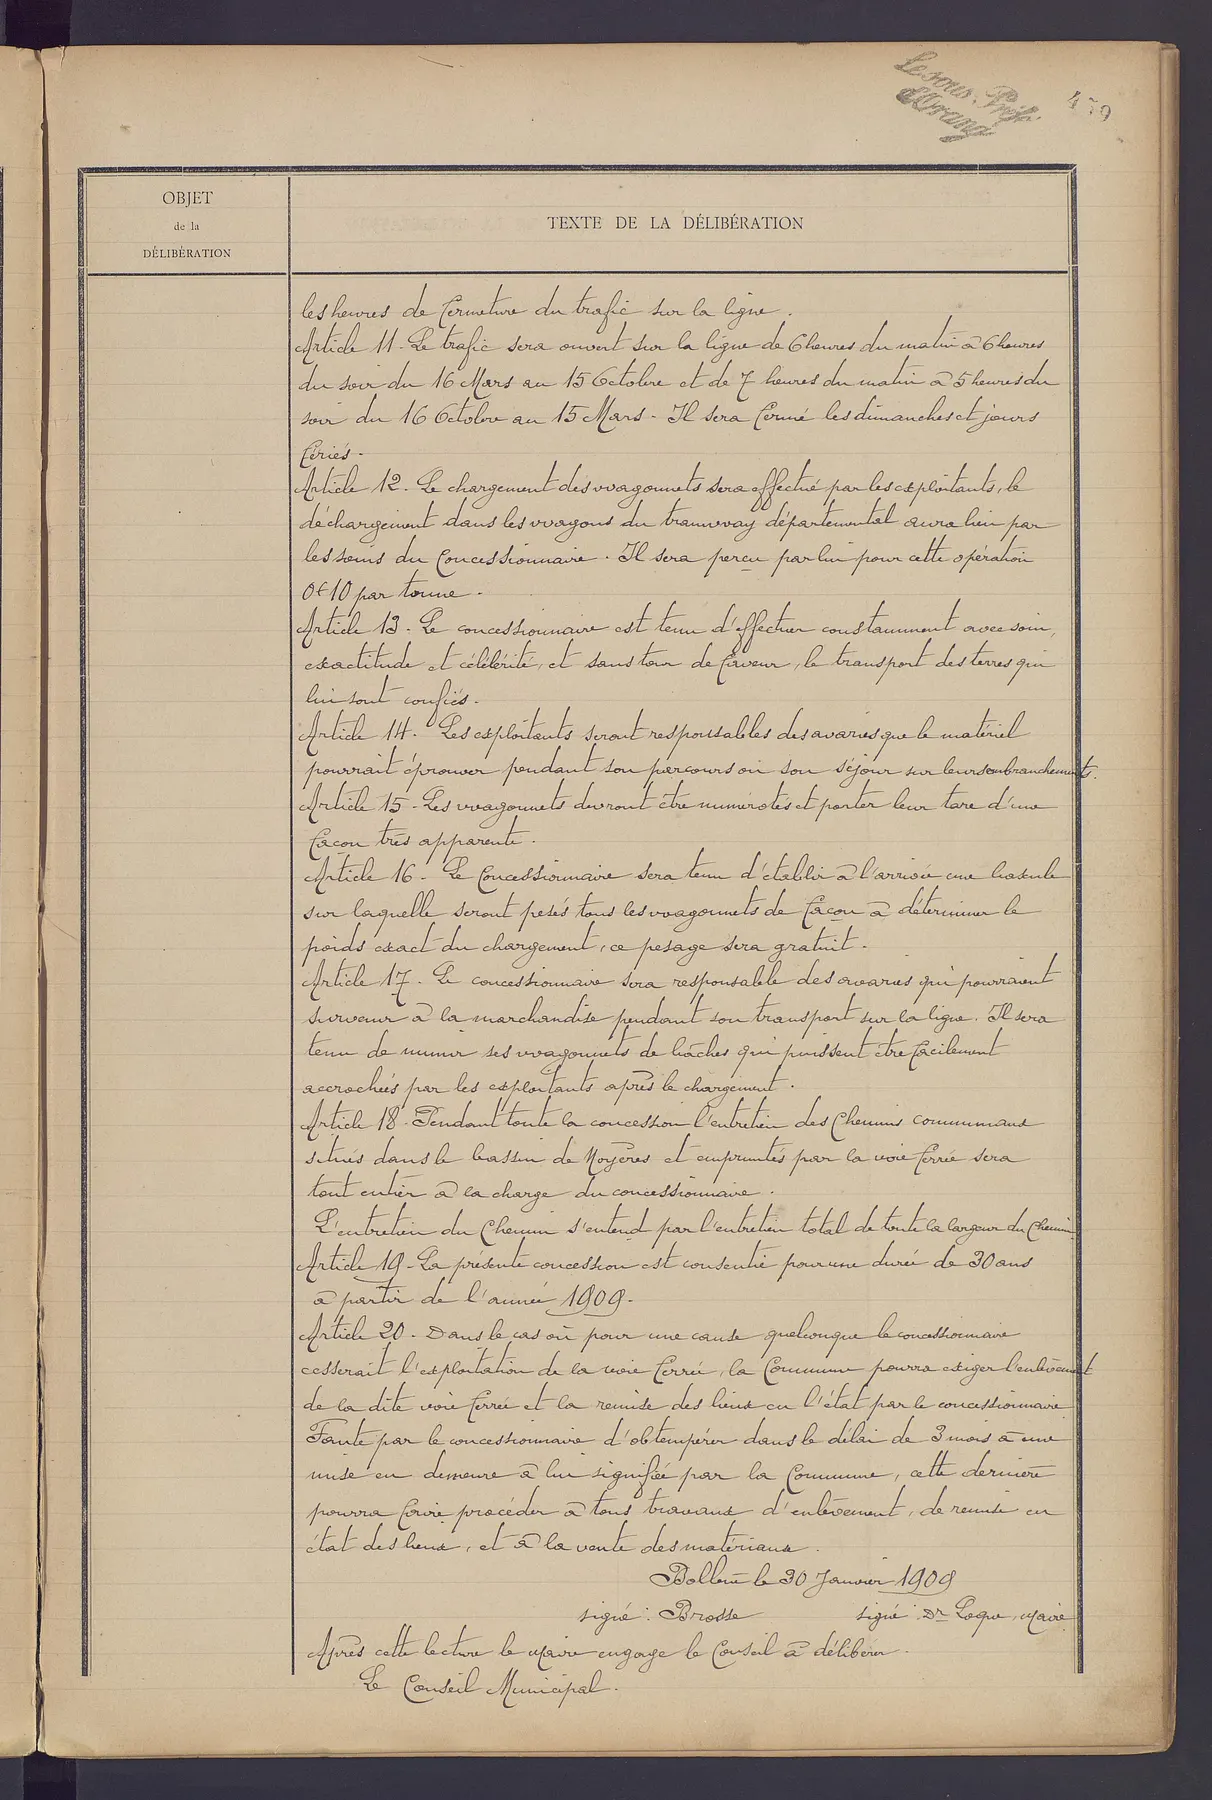 Le sous-Préf.
d'Orange
479
OBJET
de la
DÉLIBÉRATION
TEXTE DE LA DÉLIBÉRATION
les heures de fermeture du trafic sur la ligne.
Article 11 - Le trafic sera ouvert sur la ligne de 6 heures du matin à 6 heures
du soir du 16 Mars au 15 Octobre et de 7 heures du matin à 5 heures du
soir du 16 Octobre au 15 Mars - Il sera fermé les dimanches et jours
fériés -
Article 12 - Le chargement des wagonnets sera effectué par les exploitants, le
déchargement dans les wagons du tramway départemental aura lieu par
les soins du Concessionnaire. Il sera perçu par lui pour cette opération
0f10 par tonne -
Article 13 - Le concessionnaire est tenu d'effectuer constamment avec soin,
exactitude et célérité, et sans tour de faveur, le transport des terres qui
lui sont confiés -
Article 14 - Les exploitants seront responsables des avaries que le matériel
pourrait éprouver pendant son parcours ou son séjour sur leurs embranchements.
Article 15 - Les wagonnets devront être numérotés et porter leur tare d'une
façon très apparente.
Article 16 - Le Concessionnaire sera tenu d'établir à l'arrivée une bascule
sur laquelle seront pesés tous les wagonnets de façon à déterminer le
poids exact du chargement, ce pesage sera gratuit -
Article 17 - Le concessionnaire sera responsable des avaries qui pourraient
survenir à la marchandise pendant son transport sur la ligne. Il sera
tenu de munir ses wagonnets de bâches qui puissent être facilement
accrochées par les exploitants après le chargement.
Article 18 - Pendant toute la concession l'entretien des Chemins communaux
situés dans le bassin de Noyères et empruntés par la voie ferrée sera
tout entier à la charge du concessionnaire.
L'entretien du Chemin s'entend par l'entretien total de toute la largeur du Chemin
Article 19 - La présente concession est consentie pour une durée de 30 ans
à partir de l'année 1909 -
Article 20 - Dans le cas où pour une cause quelconque le concessionnaire
cesserait l'exploitation de la voie ferrée, la Commune pourra exiger l'enlèvement
de la dite voie ferrée et la remise des lieux en l'état par le concessionnaire
Faute par le concessionnaire d'obtempérer dans le délai de 3 mois à une
mise en demeure à lui signifiée par la Commune, cette dernière
pourra faire procéder à tous travaux d'enlèvement, de remise en
état des lieux, et à la vente des matériaux.
Bollène le 30 Janvier 1909
signé : Brosse signé : Dr Loque, Maire
Après cette lecture le Maire engage le Conseil à délibérer.
Le Conseil Municipal.